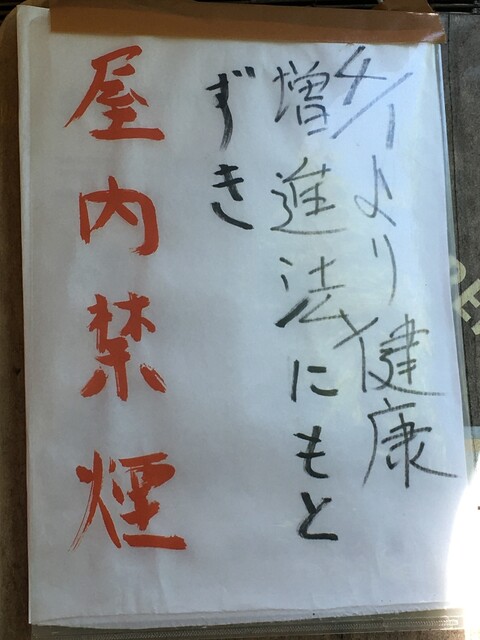 4/1より健康
増進法にもと
ずき
屋内禁煙